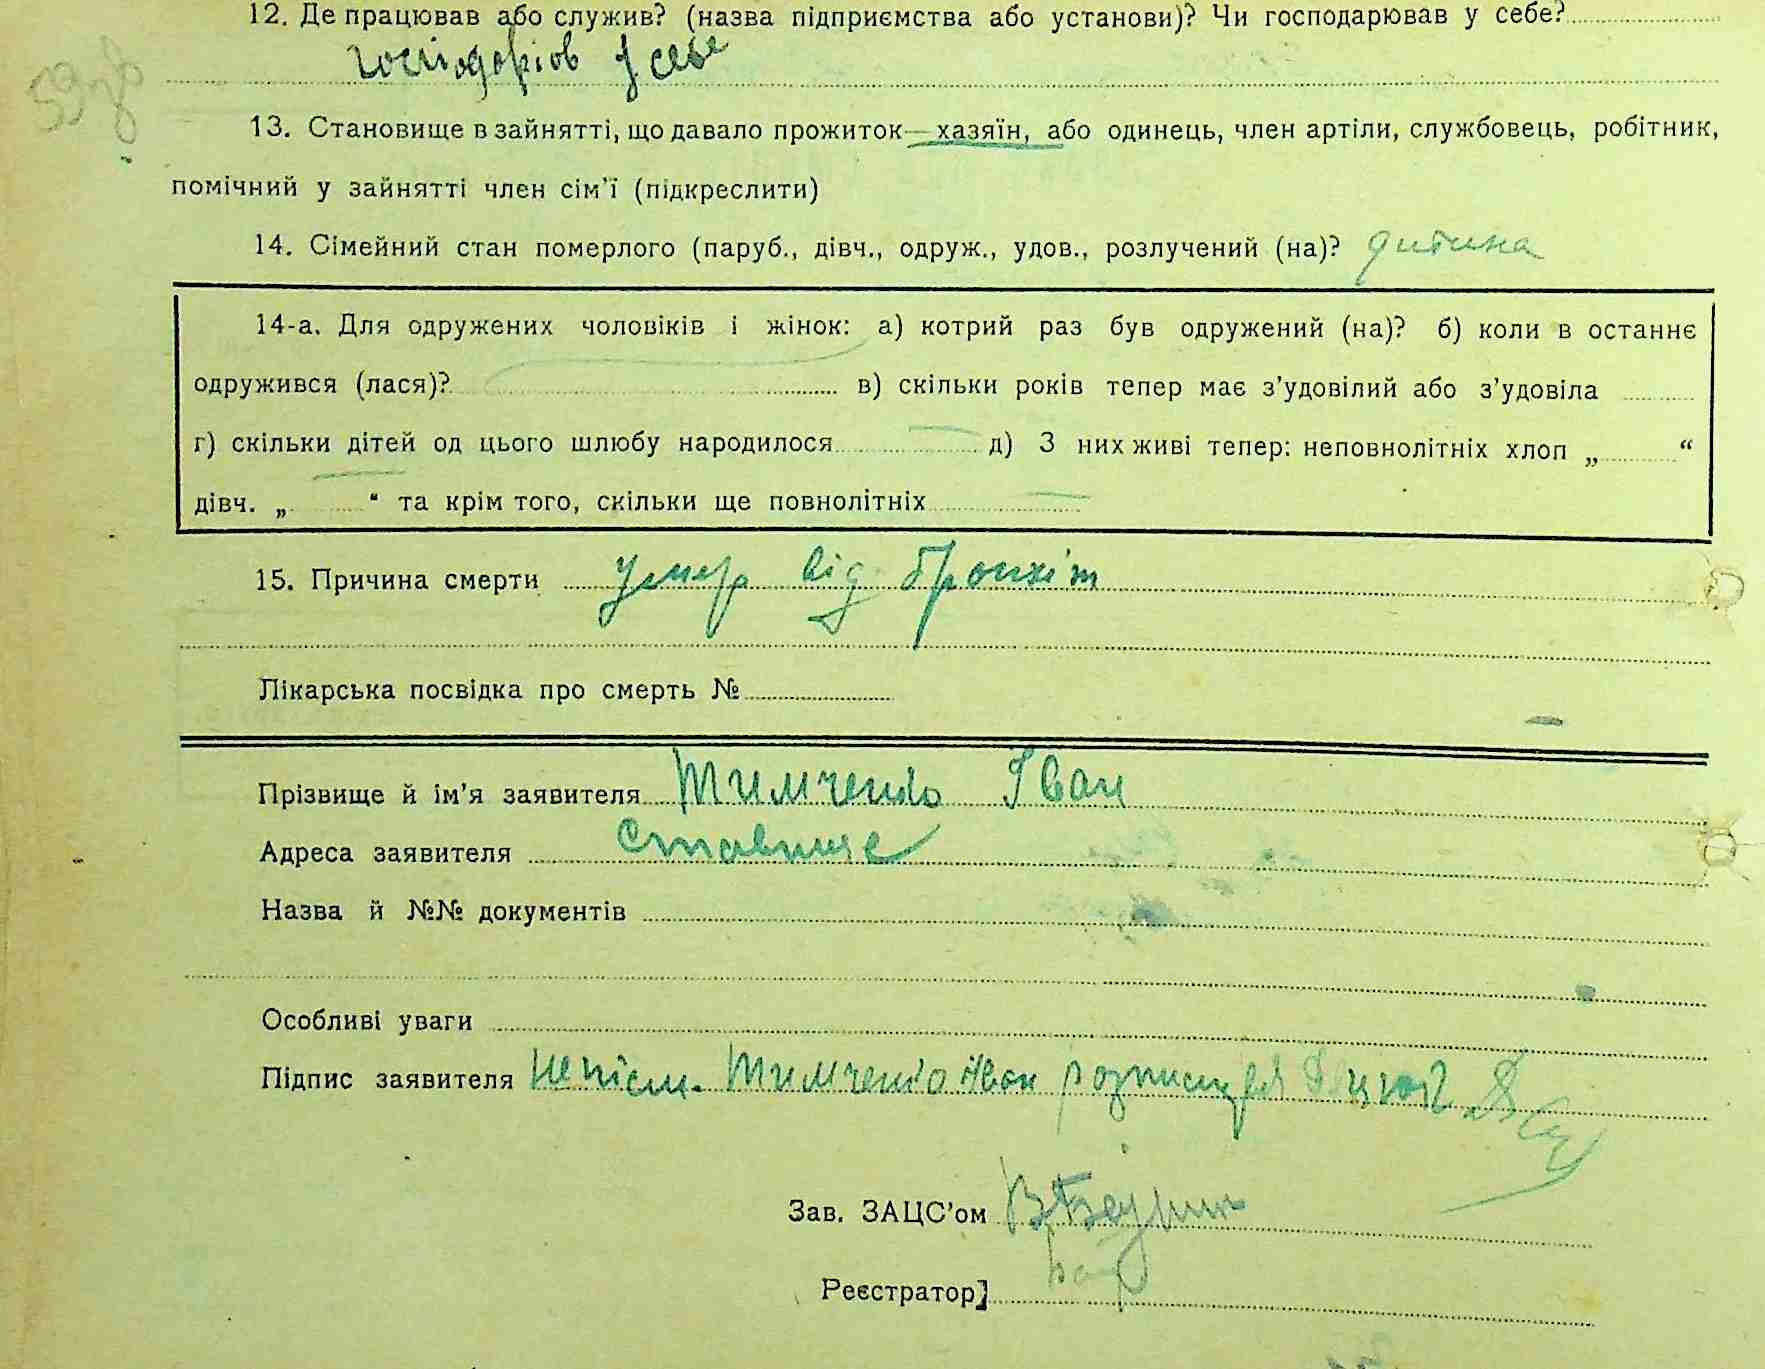 12. Де працював або служив? (назва підприємства або установи)? Чи господарював у себе?
господарював у себе
13. Становище в зайнятті, що давало прожиток—хазяїн, або одинець, член артіли, службовець, робітник,
помічний у зайнятті член сім'ї (підкреслити)
14. Сімейний стан померлого (паруб., дівч., одруж., удов., розлучений (на)? дитина
14-а. Для одружених чоловіків і жінок: а) котрий раз був одружений (на)? б) коли в останнє
одружився (лася)? в) скільки років тепер має з'удовілий або з'удовіла
г) скільки дітей од цього шлюбу народилося д) З них живі тепер: неповнолітніх хлоп „ “
дівч. „ “ та крім того, скільки ще повнолітніх
15. Причина смерти умер від бронхіт
Лікарська посвідка про смерть №
Прізвище й ім'я заявителя Тимченко Іван
Адреса заявителя Ставище
Назва й №№ документів
Особливі уваги
Підпис заявителя непісм. Тимченко Іван розписався
Зав. ЗАЦС'ом
Реєстратор